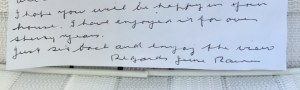 I hope you will be happy in your
house. I have enjoyed it for over
thirty years.
Just sit back and enjoy the view
Regards June